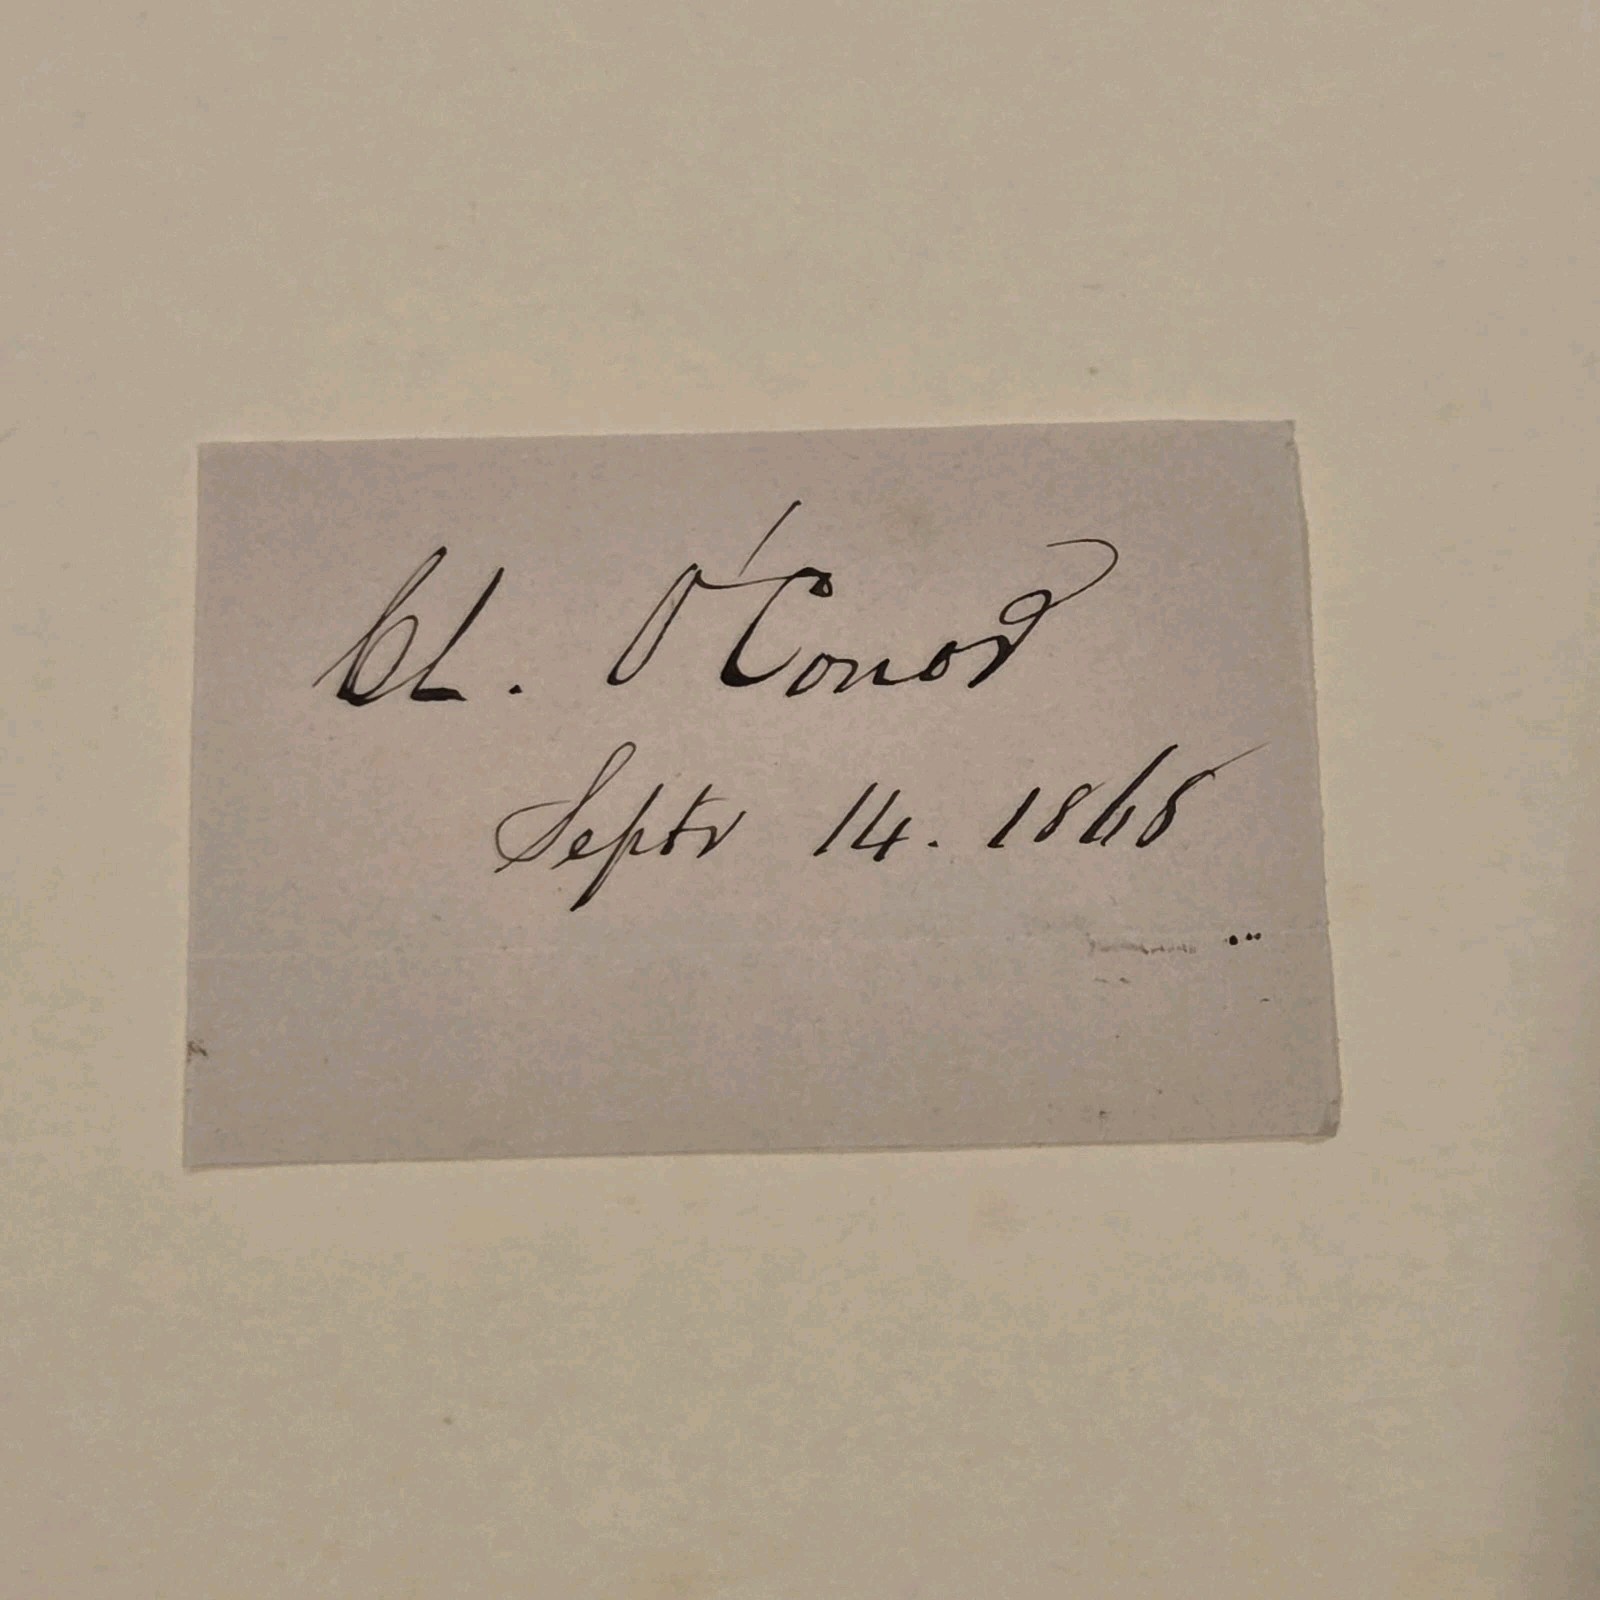 Ch. O'Conor
Septr 14. 1868